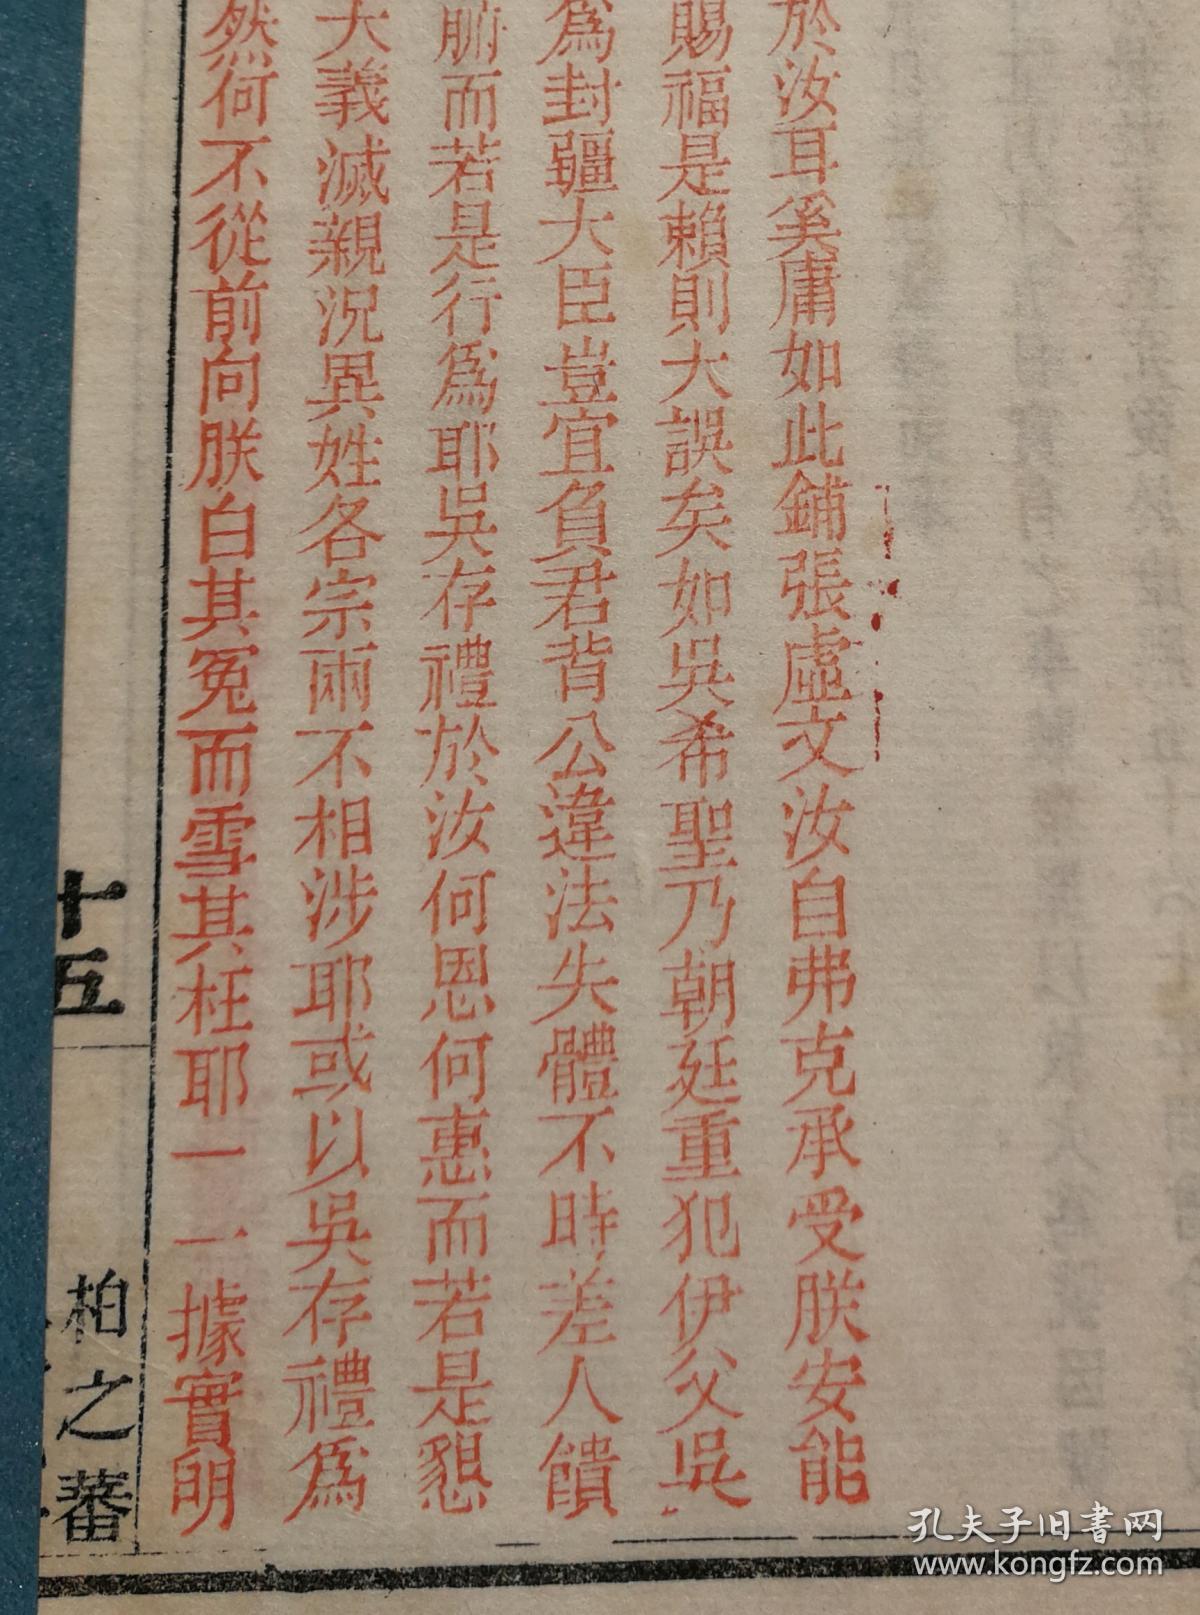 於汝耳奚庸如此鋪張虛文汝自弗克承受朕安能
賜福是賴則大誤矣如吳希聖乃朝廷重犯伊父吳
為封疆大臣豈宜負君背公違法失體不時差人饋
腑而若是行為耶吳存禮於汝何恩何惠而若是懇
大義滅親況異姓各宗兩不相涉耶或以吳存禮為
然何不從前向朕白其冤而雪其枉耶一一據實明
十五
柏之蕃
孔夫子旧书网
www.kongfz.com